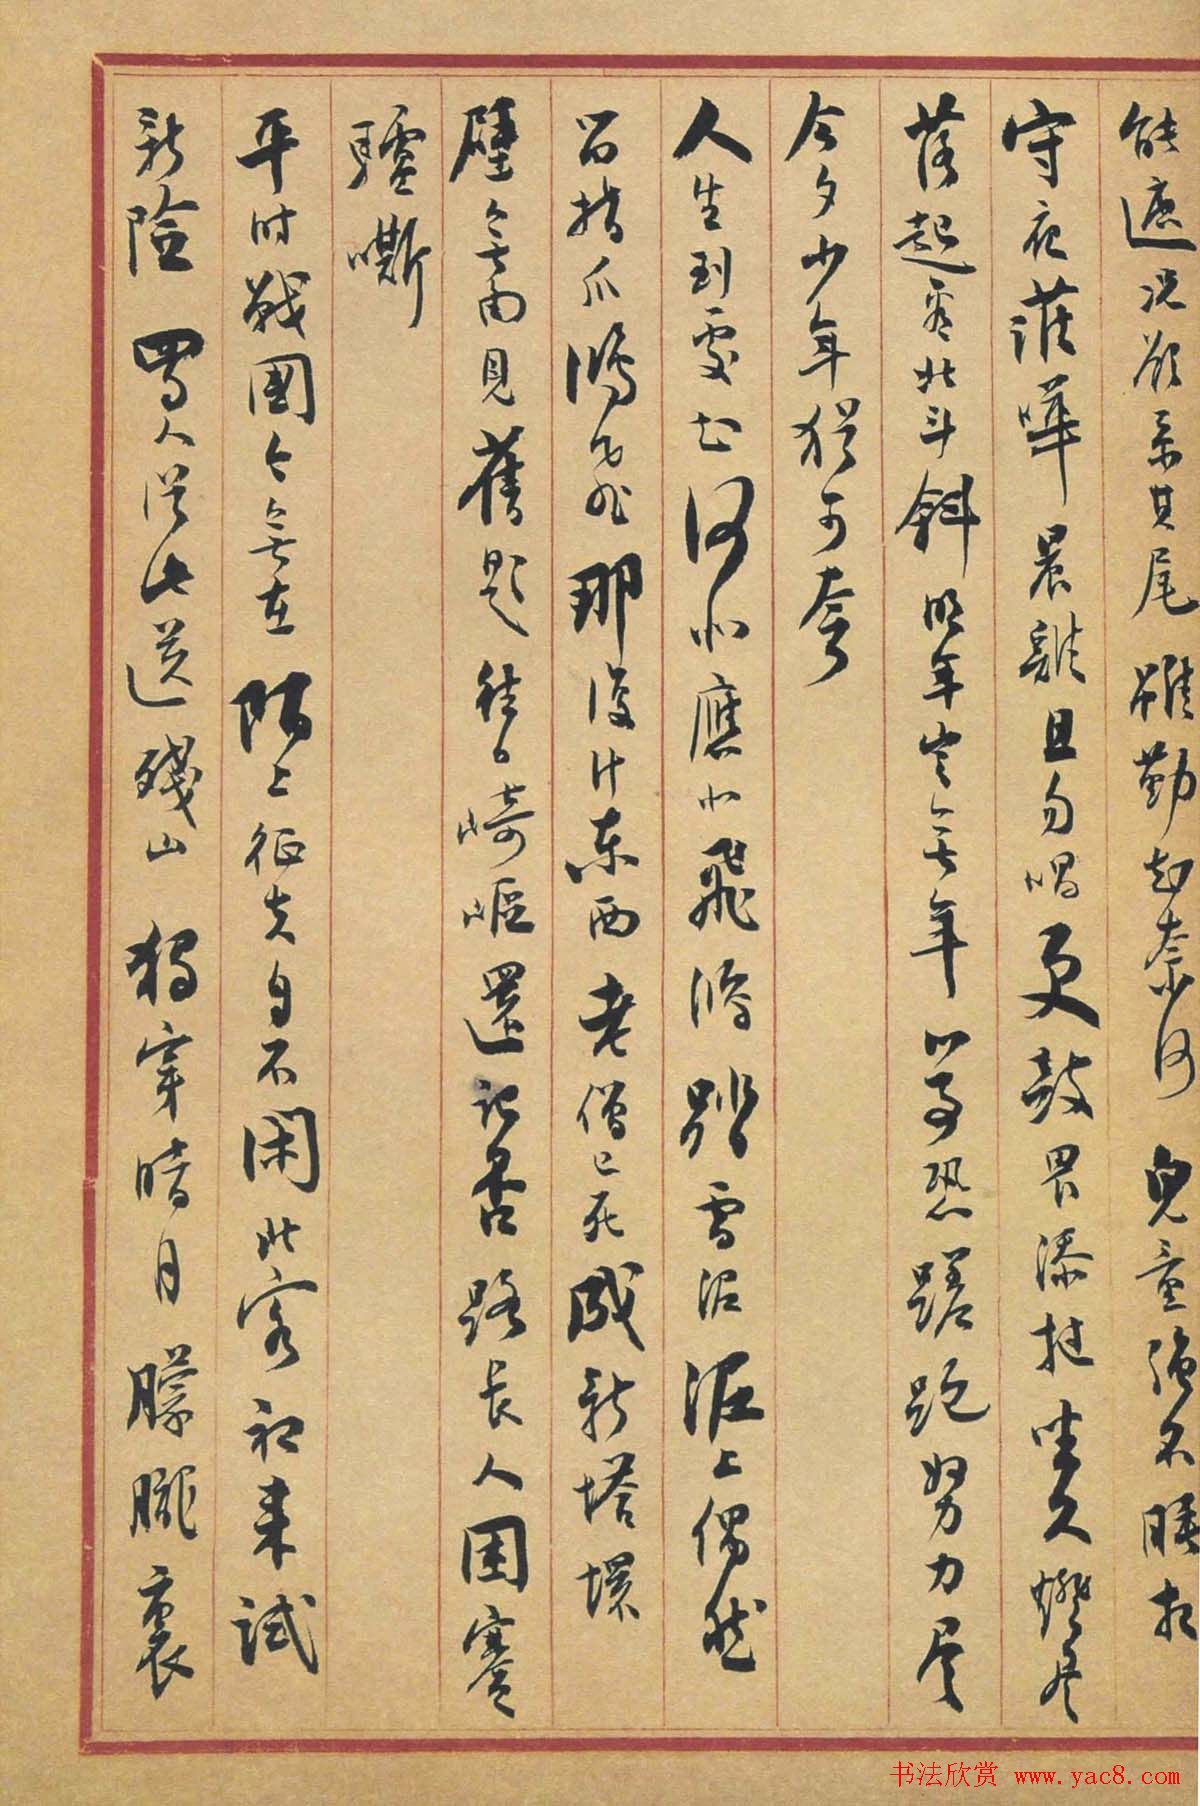 能遮况欲系其尾雖勤知奈何兒童強不睡相
守夜讙嘩晨雞且勿唱更鼓畏添撾坐久燈燼
落起看北斗斜明年豈無年心事恐蹉跎努力尽
今夕少年猶可夸
人生到處知何似應似飛鴻踏雪泥泥上偶然
留指爪鴻飛那復计東西老僧已死成新塔壞
壁無由見舊題往日崎嶇還記否路長人困蹇
驢嘶
平时戰國今無在陌上征夫自不閑北客初来試
新險蜀人從此送殘山獨穿暗月朦朧裏
书法欣赏 www.yac8.com